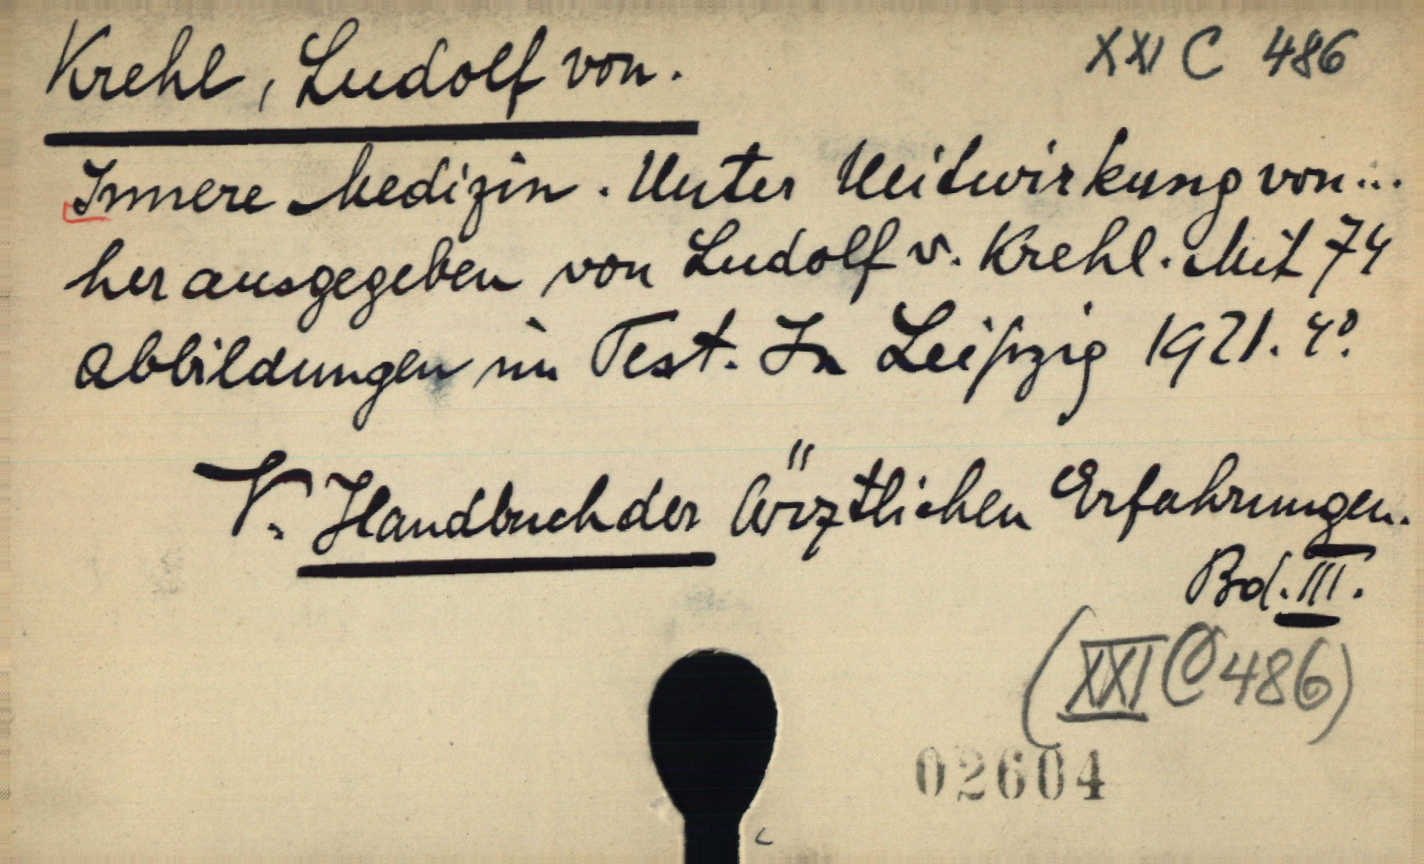 Krehl, Ludolf von.
XXI C 486
Innere Medizin. Unter Mitwirkung von...
herausgegeben von Ludolf v. Krehl. Mit 74
Abbildungen im Text. In Leipzig 1921. 4°.
V. Handbuch der Ärztlichen Erfahrungen.
Bd. III.
(XXI C 486)
02604